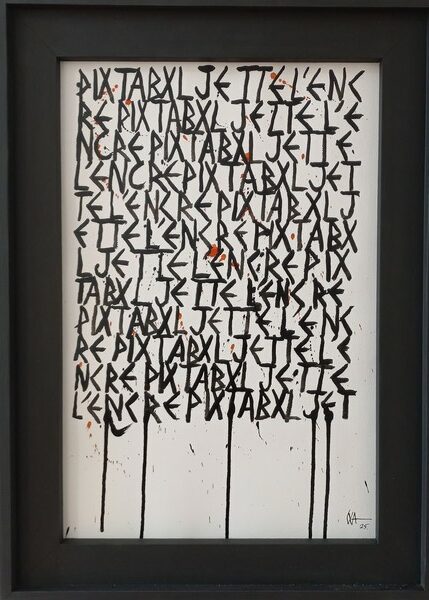 PIXTABXL JETTE L'ENC
RE PIXTABXL JETTE L'E
NCRE PIXTABXL JETTE
L'ENCRE PIXTABXL JET
TE L'ENCRE PIXTABXL J
ETTE L'ENCRE PIXTABX
L JETTE L'ENCRE PIX
TABXL JETTE L'ENCRE
PIXTABXL JETTE L'ENC
RE PIXTABXL JETTE L'E
NCRE PIXTABXL JETTE
L'ENCRE PIXTABXL JET
25